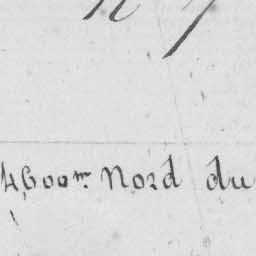 4600m Nord du